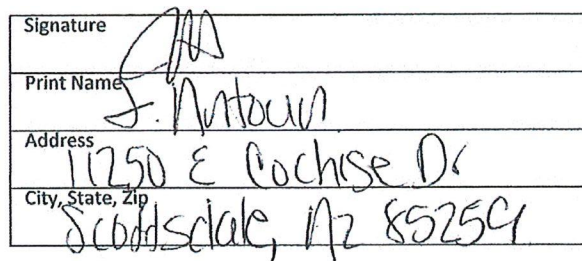 Signature
Print Name
J. Antoun
Address
11250 E Cochise Dr
City, State, Zip
Scoddsdale, Az 85259